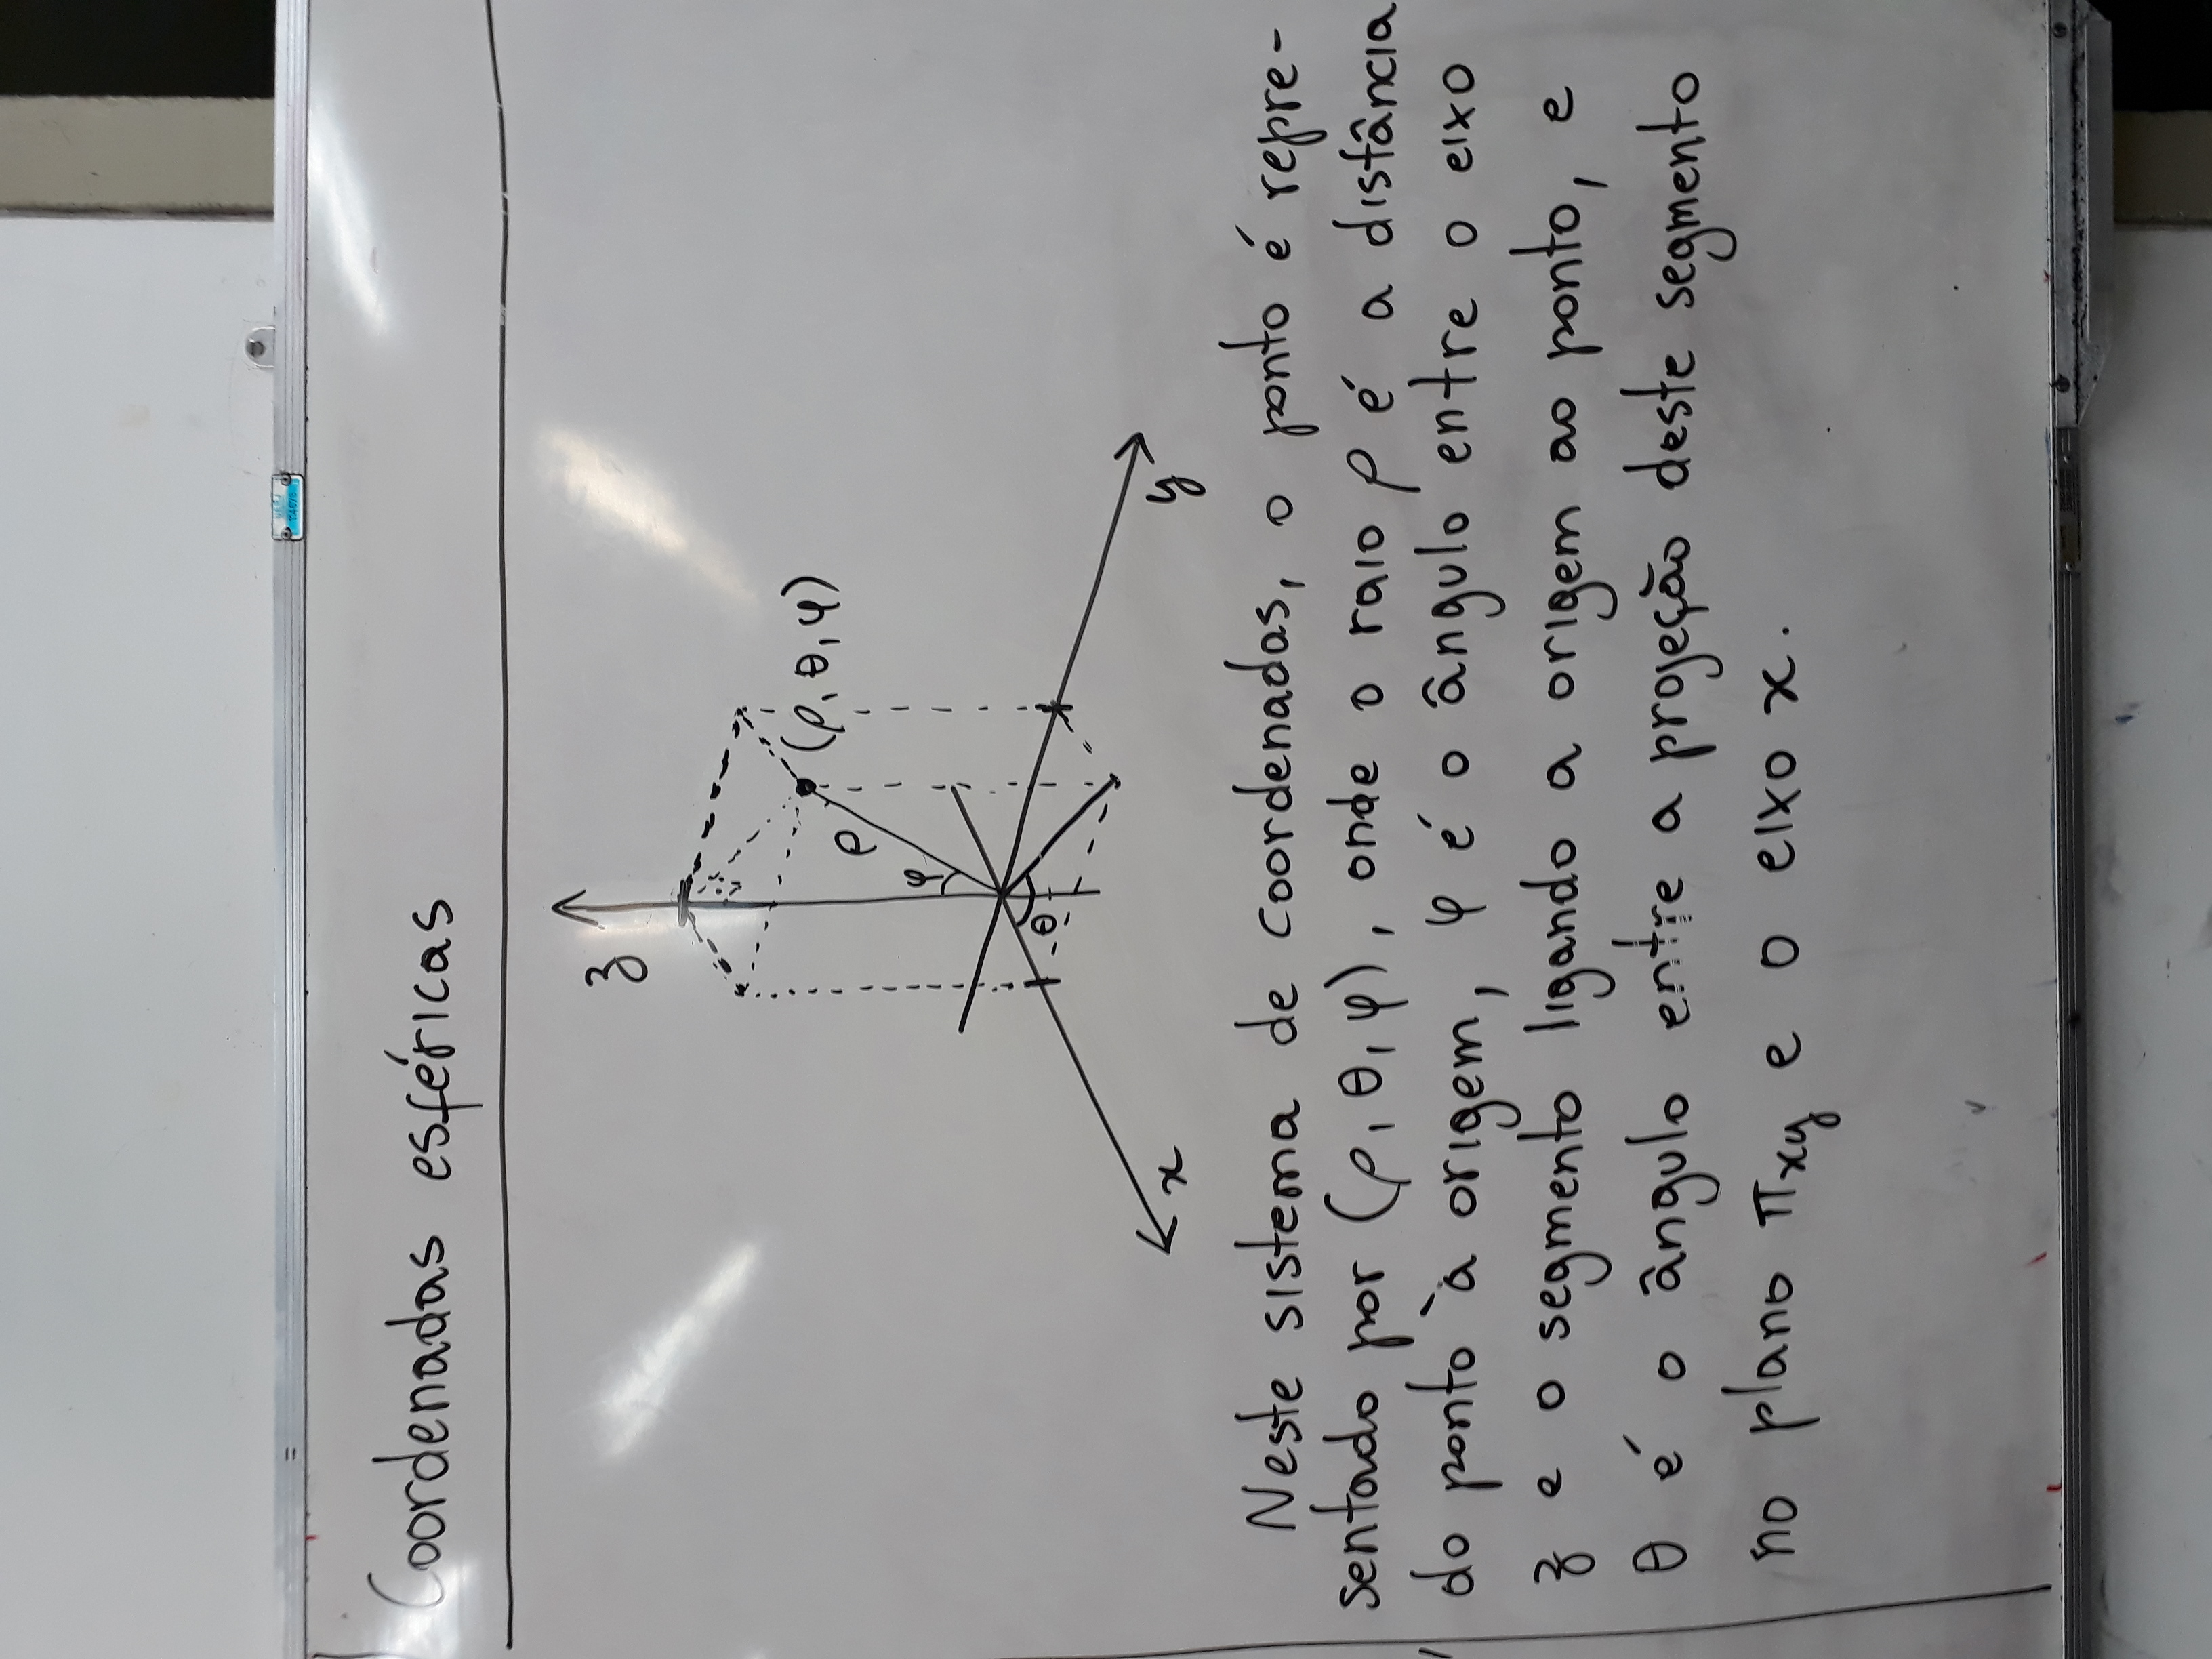 Coordenadas esféricas
z
(ρ, θ, φ)
ρ
φ
θ
x
y
Neste sistema de coordenadas, o ponto é repre-
sentado por (ρ, θ, φ), onde o raio ρ é a distância
do ponto à origem, φ é o ângulo entre o eixo
z e o segmento ligando a origem ao ponto, e
θ é o ângulo entre a projeção deste segmento
no plano πxy e o eixo x.